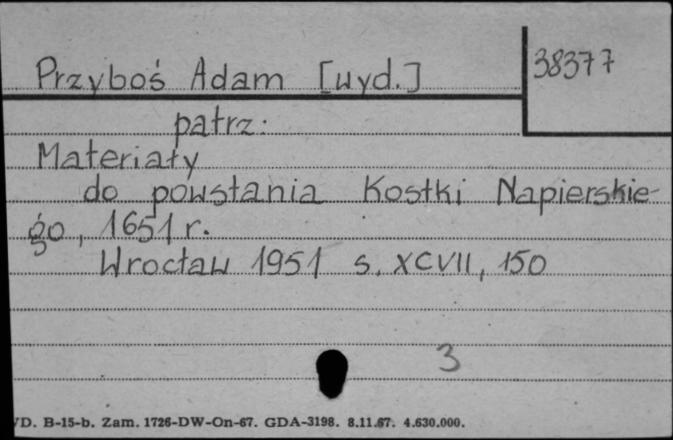 Przyboś Adam [wyd.]
38377
patrz:
Materiały
do powstania Kostki Napierskie-
go, 1651 r.
Wrocław 1951 s. XCVII, 150
3
D. B-15-b. Zam. 1726-DW-On-67. GDA-3198. 8.11.67. 4.630.000.